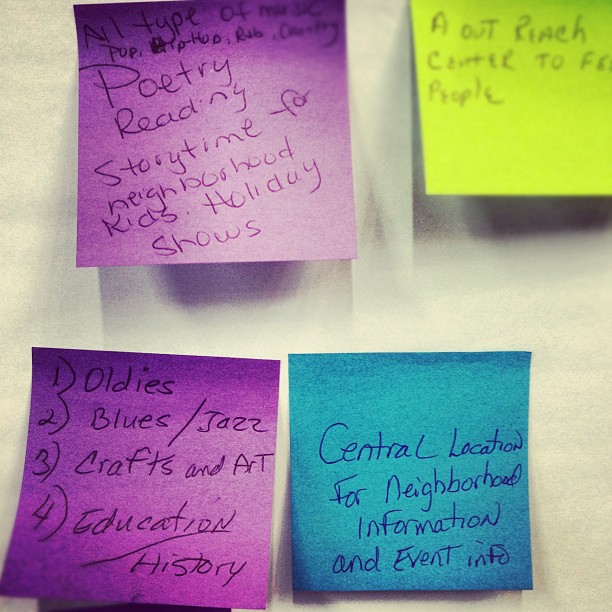 All type of music
Pop, Hip-Hop, R&B, Country
Poetry
Reading
Storytime for
neighborhood
Kids. Holiday
Shows
A OUT REACH
CENTER TO
PEOPLE
1) Oldies
2) Blues/Jazz
3) Crafts and ArT
4) Education
History
Central Location
For Neighborhood
Information
and Event info